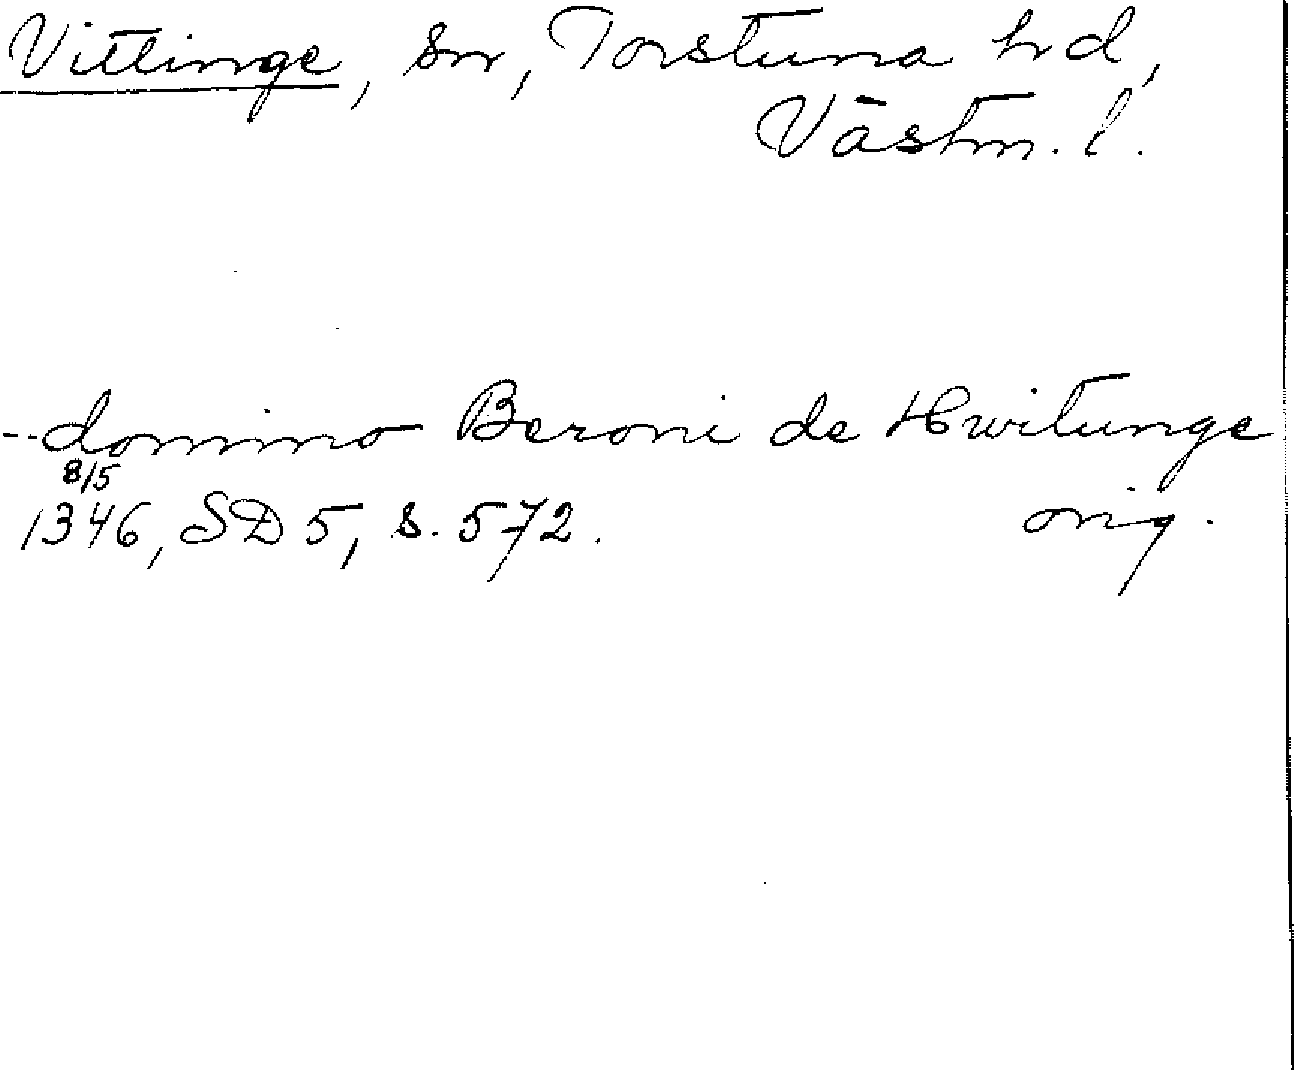 Vittinge, sn, Torstuna hd,
Västm. l.
-- domino Beroni de Hwitunge
8/5
1346, SD 5, s. 572. orig.